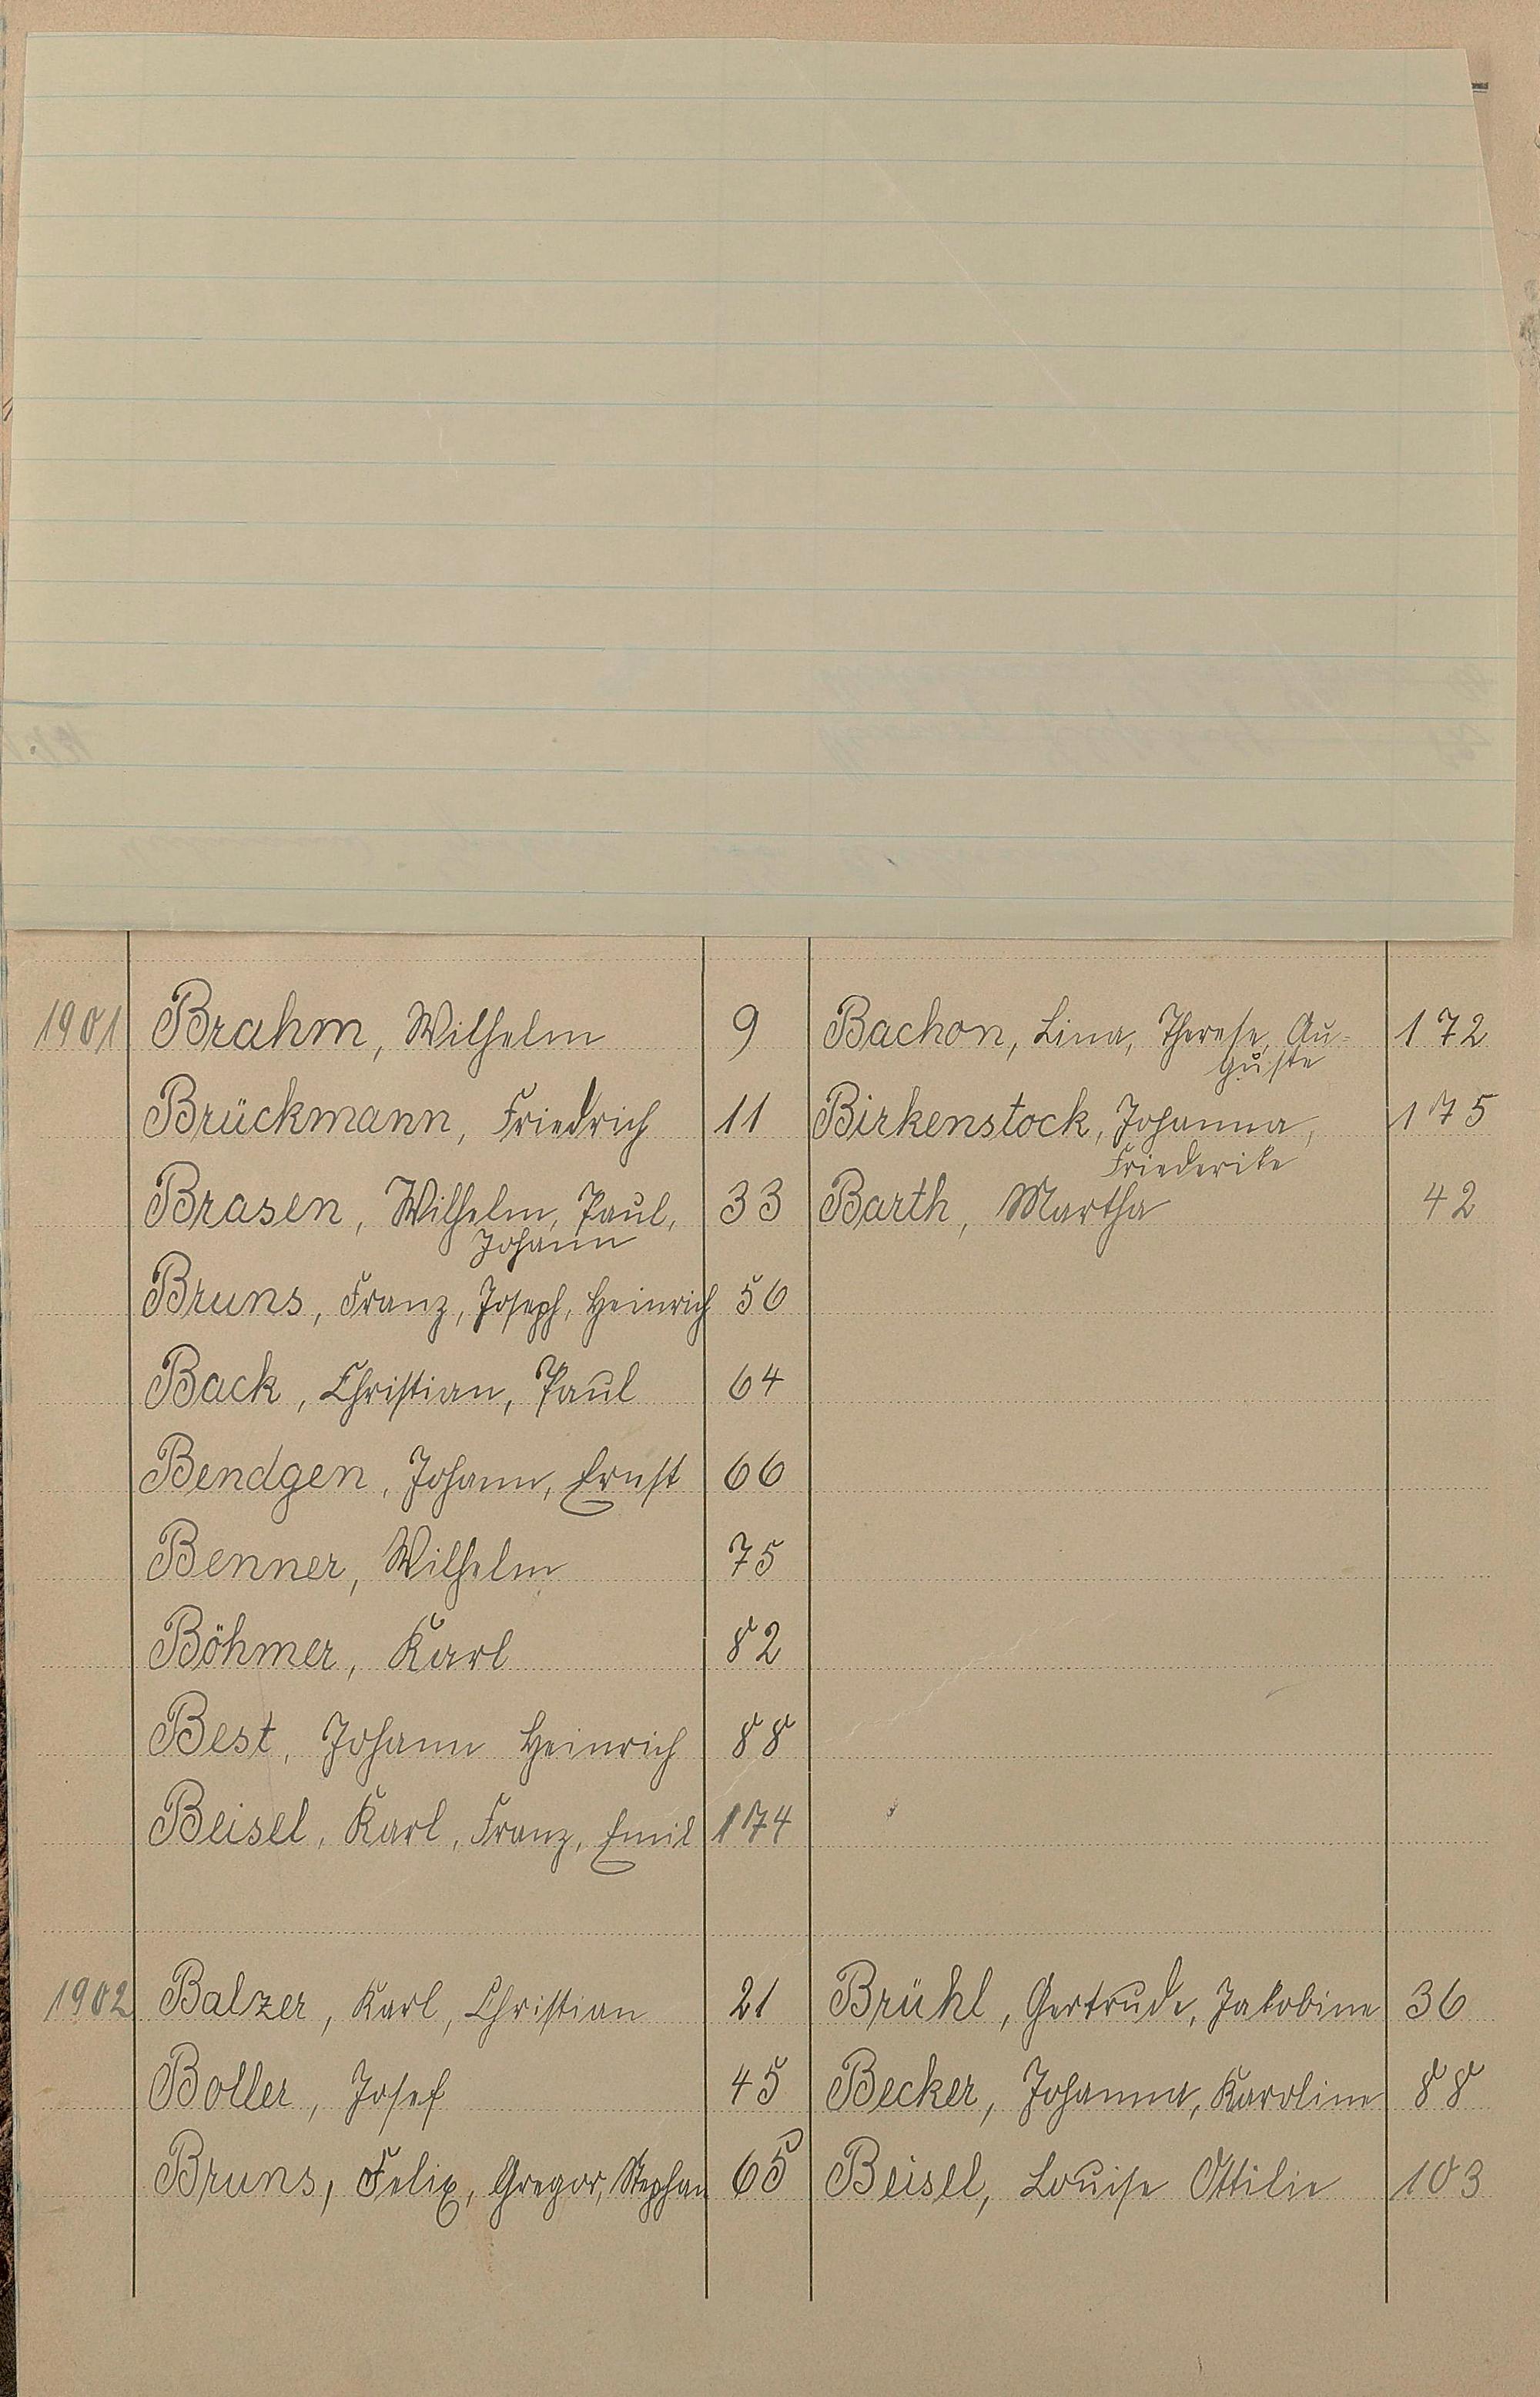 1901 Brahm, Wilhelm 9 Bachon, Lina, Therese, Au- 172
guste
Brückmann, Friedrich 11 Birkenstock, Johanna, 175
Friederike
Brasen, Wilhelm, Paul, 33 Barth, Martha 42
Johann
Bruns, Franz, Joseph, Heinrich 56
Back, Christian, Paul 64
Bendgen, Johann, Ernst 66
Benner, Wilhelm 75
Böhmer, Karl 82
Best, Johann Heinrich 88
Beisel, Karl, Franz, Emil 174
1902 Balzer, Karl, Christian 21 Brühl, Gertrude, Jakobine 36
Boller, Josef 45 Becker, Johanna, Karoline 88
Bruns, Felix, Gregor, Stephan 65 Beisel, Louise Ottilie 103